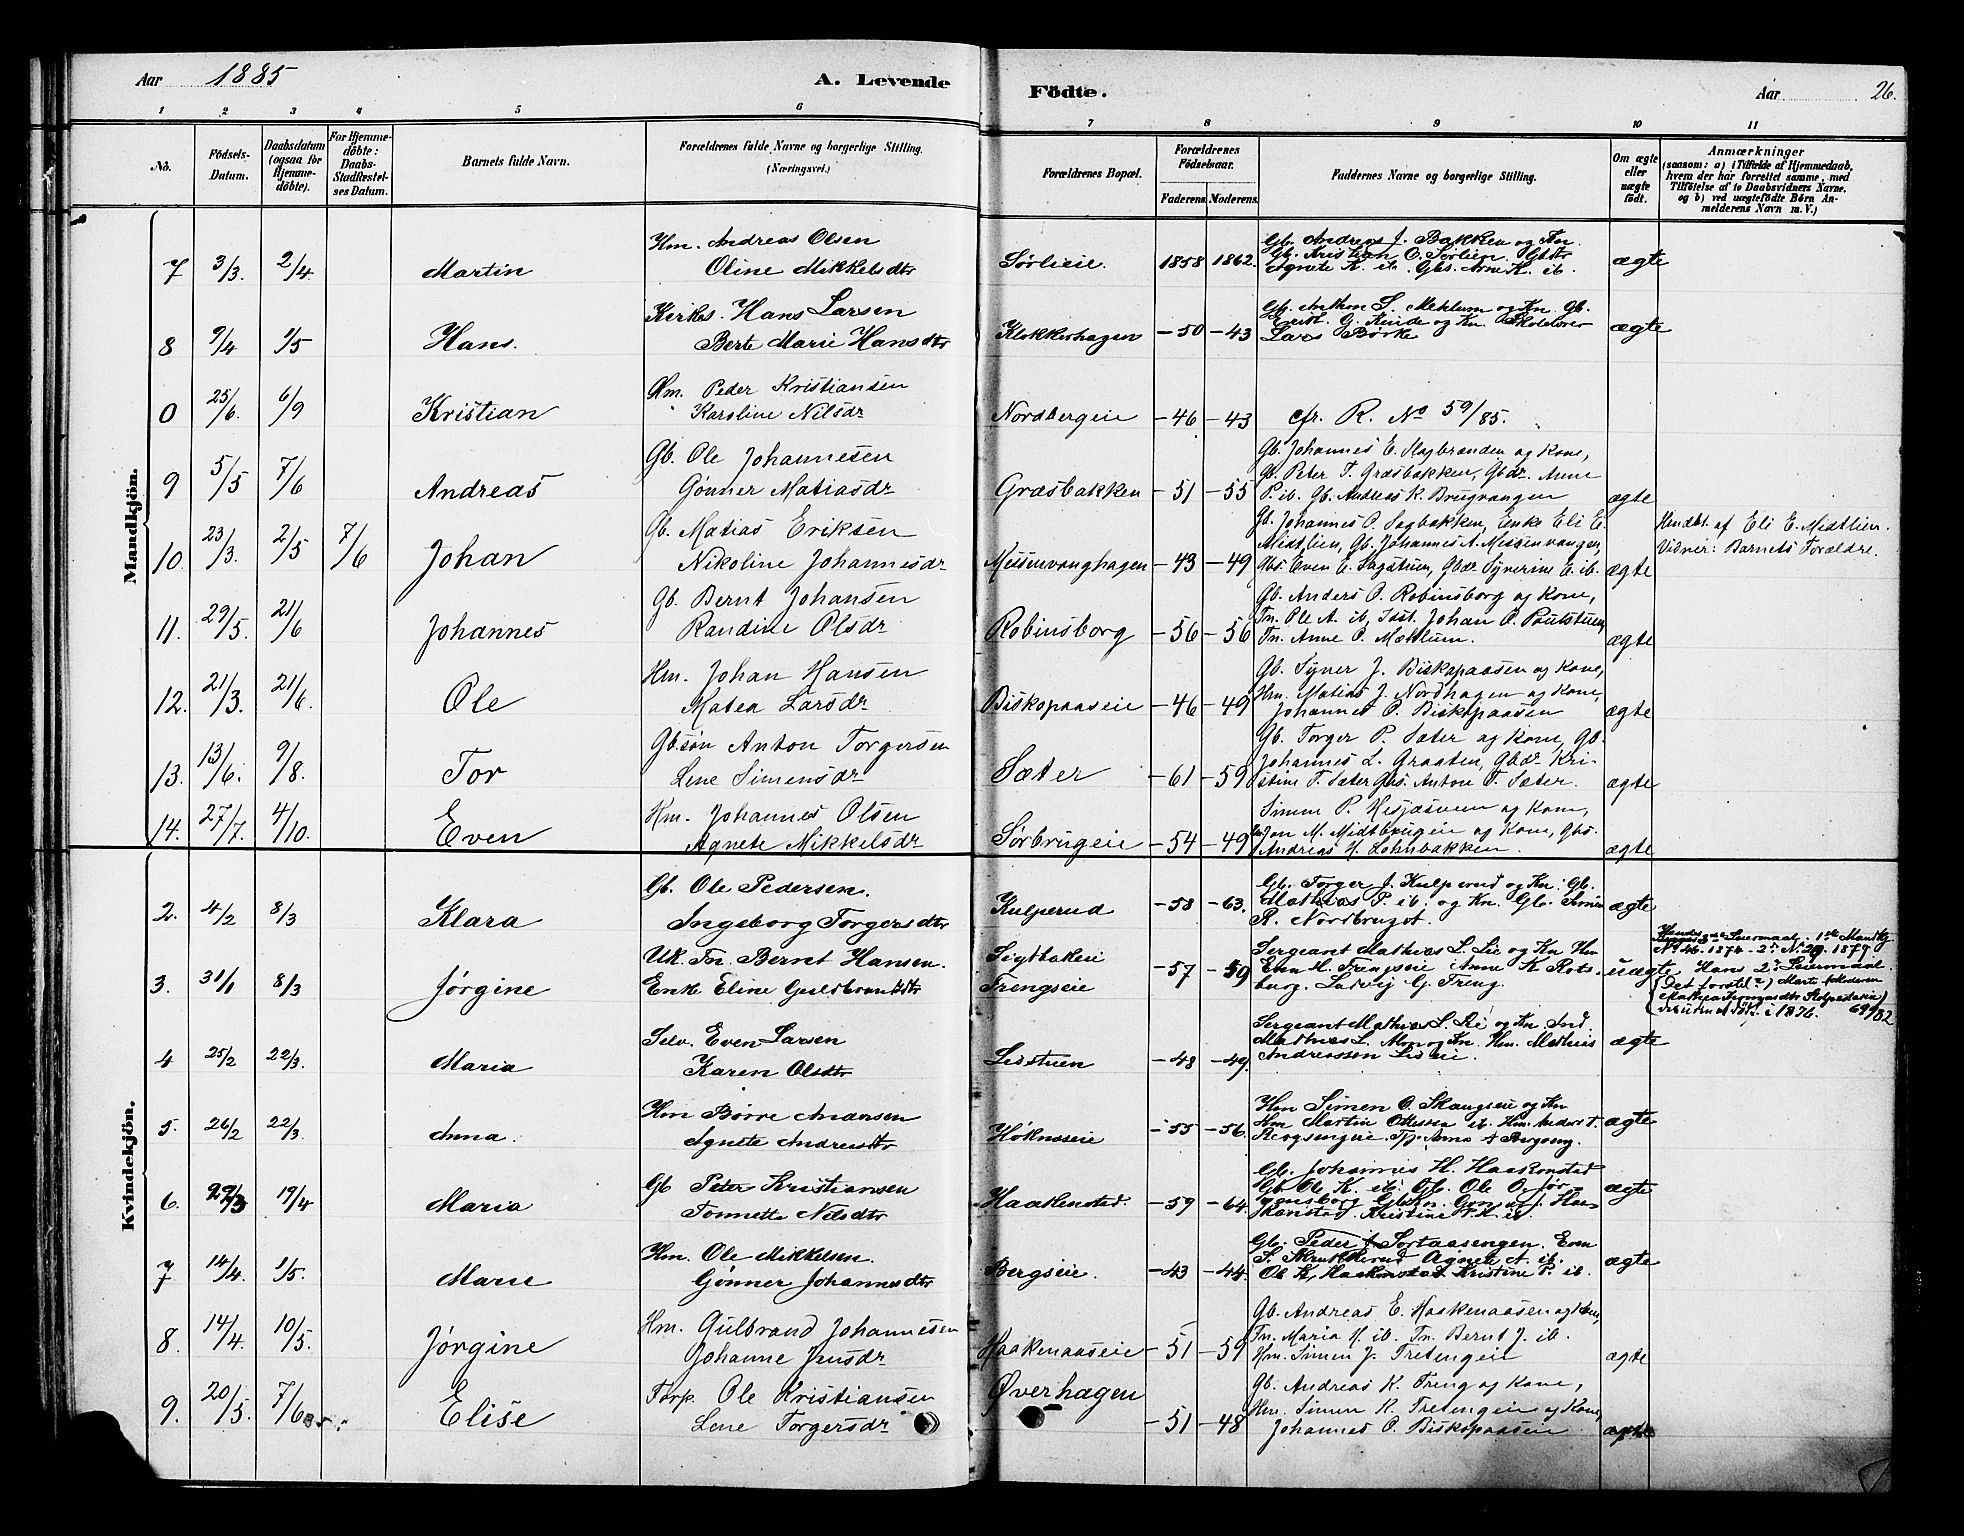 Aar 1885 A. Levende Födte. Aar 26.
1 2 3 4 5 6 7 8 9 10 11
No. Födsels-Datum. Daabsdatum (ogsaa för Hjemme-döbte). For Hjemme-döbte: Daabs-Stadfestel-ses Datum. Barnets fulde Navn. Forældrenes fulde Navne og borgerlige Stilling. (Næringsvei.) Forældrenes Bopæl. Forældrenes Födselsaar. Faderens. Moderens. Faddernes Navne og borgerlige Stilling. Om ægte eller uægte födt. Anmærkninger (saasom: a) i Tilfælde af Hjemmedaab, hvem der har forrettet samme, med Tilföielse af to Daabsvidners Navne, og b) ved uægtefödte Börn An-melderens Navn m. V.)
Mandkjön.
7 3/3. 2/4 Martin Hm. Andreas Olsen
Oline Mikkelsdtr Sørlieie. 1858 1862. Gb. Andreas J. Bakken og Kn.
Gb. Kristian O. Sørlien. Gbdtr
Agnete K. ib. Gbs. Arne K. ib. ægte
8 9/4 1/5 Hans. Kirkes. Hans Larsen
Berte Marie Hansdtr Klokkerhagen -50 -43 Gb. Anthon S. Mehlum og Kn. Gb.
G. og Kn. Skolelærer
Lars Børke ægte
0 25/6. 6/9 Kristian Hm. Peder Kristiansen
Karoline Nilsdr Nordbergeie -46 -43 cfr. R. No 59/85.
9 5/5 7/6 Andreas Gb. Ole Johannesen
Gønner Matiasdr Græsbakken -51 -55 Gb. Johannes E. Hagbranden og Kone,
Gb. Peter T. Græsbakken, Gbdr. Anne
P. ib. Gb. Andreas K. Brugvangen ægte
10. 23/3. 2/5 7/6 Johan Gb. Matias Eriksen
Nikoline Johannesdr Musenvanghagen -43 -49 Gb. Johannes O. Sagbakken, Enke Eli E.
Midtlien, Gb. Johannes A. Musenvangen,
Gbs. Even E. Sagstuen, Gbdr. Syverine E. ib. ægte Hmdbt. af Eli E. Midtlien.
Vidner: Barnets Forældre.
11. 29/5. 21/6 Johannes Gb. Bernt Johansen
Randine Olsdr Robinsborg -56 -56 Gb. Anders O. Robinsborg og Kone,
Tn. Ole A. ib, Inst. Johan O. Poutstuen,
Tn. Anne O. Mæhlum. ægte
12. 21/3. 21/6. Ole Hm. Johan Hansen
Matea Larsdr Biskopaaseie -46 -49 Gb. Syver J. Biskopaasen og Kone,
Hm. Matias J. Nordhagen og Kone,
Johannes O. Biskopaasen ægte
13. 13/6. 9/8. Tor Gb.søn Anton Torgersen
Lene Simensdr Sæter -61 -59 Gb. Torger P. Sæter og Kone, Gb.
Johannes L. Graaten, Gbdr. Kri-
stine T. Sæter Gbs. Anton T. Sæter. ægte
14. 27/7. 4/10. Even Hm. Johannes Olsen
Agnete Mikkelsdr Sørbrugeie -54 -49 Simen P. Hesjasveen og Kone,
Jon M. Midtbrugeie og Kone, Gbs.
Andreas H. Lohnbakken. ægte
Kvindekjön.
2. 4/2 8/3 Klara Gb. Ole Pedersen.
Ingeborg Torgersdtr Kulperud -58 -63. Gb. Torger J. Kulperud og Kn. Gb.
Mathias P. ib. og Kn. Gb. Simen
R. Nordbruget. ægte
3. 31/1 8/3 Jørgine Uk. Tn. Bernt Hansen.
Enke Eline Guldbrandsdtr Sigstadeie
Trengseie -57 -59 Sergeant Mathias L. Lie og Kn Hm
Even H. Trengseie Anne K Rots-
burg. Ludvig G. Treng. uægte Hendes 3die Leiermaal. 1ste Mandkj
1874 - 2. N. 29. 1879.
Hans 2. Leiermaal.
(Det første) Marte
i 1876. 69/82
4 25/2 22/3. Maria Selv. Even Larsen
Karen Olsdtr Liestuen -48 -49. Sergeant Mathias L. Lie og Kn Ind.
Mathias L. Moen og Kn. Hm. Mathias
Andreassen Lieeie. ægte
5. 26/2 22/3. Anna. Hm Børre Andersen
Agnete Andreasdtr Høknæseie -55 -56. Hm Simen O. Skaugseie og Kn
Hm Martin Ottesen ib. Hm. Anders T.
Bergsengeie. Tj. Anne A Bergseng. ægte
6. 22/3 19/4 Maria Gb Peter Kristiansen
Tonnette Nilsdtr Haakenstad. -59 -64. Gb. Johannes H. Haakenstad
Gb Ole K. ib. Gb. Ole O. Jør-
gensborg J. Haa-
kenstad. Kristine K. ib. ægte
7 14/4. 1/5. Marie Hm. Ole Mikkelsen.
Gønner Johannesdtr Bergseie. -43 -44. Gb. Peder J. Sortaasengen. Even
S. Agnete A. ib.
Ole K. Haakenstad. Kristine P. ib. ægte
8. 14/4. 10/5. Jørgine Hm. Gulbrand Johannesen
Johanne Jensdr Haakenaaseie -51 -59 Gb. Andreas E. Haakenaasen og Kone,
Tn. Maria H. ib. Tn. Bernt J. ib.
Hm. Simen J. Tretengeie ægte
9. 20/5. 7/6 Elise Torp. Ole Kristiansen
Lene Torgersdr Øverhagen -51 -48 Gb. Andreas K. Treng og Kone,
Hm. Simen K. Tretengeie og Kone,
Johannes O. Biskopaaseie ægte